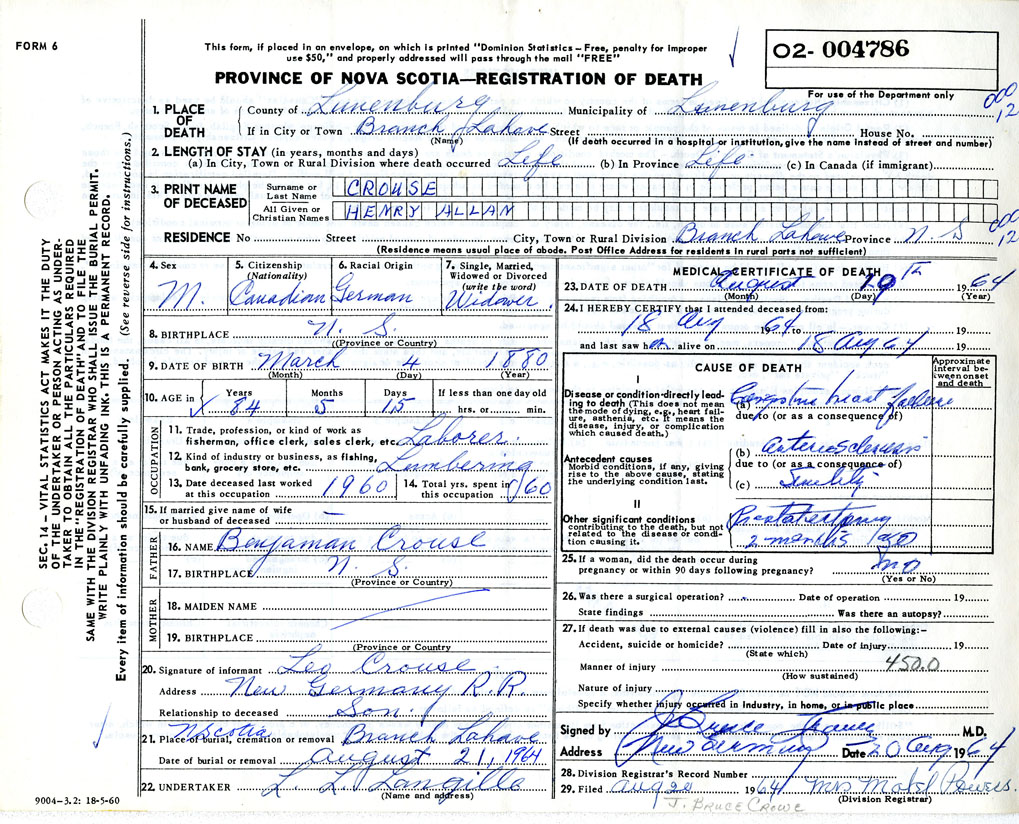 FORM 6
This form, if placed in an envelope, on which is printed "Dominion Statistics – Free, penalty for improper
use $50," and properly addressed will pass through the mail "FREE"
02- 004786
For use of the Department only
PROVINCE OF NOVA SCOTIA—REGISTRATION OF DEATH
000
12
1. PLACE OF DEATH
County of Lunenburg Municipality of Lunenburg
If in City or Town Branch Lahave Street House No.
(Name) (If death occurred in a hospital or institution, give the name instead of street and number)
2. LENGTH OF STAY (in years, months and days)
(a) In City, Town or Rural Division where death occurred Life (b) In Province Life (c) In Canada (if immigrant)
3. PRINT NAME OF DECEASED
Surname or Last Name CROUSE
All Given or Christian Names HENRY ALLAN
000
12
RESIDENCE No Street City, Town or Rural Division Branch Lahave Province N. S
(Residence means usual place of abode. Post Office Address for residents in rural parts not sufficient)
4. Sex
M.
5. Citizenship (Nationality)
Canadian
6. Racial Origin
German
7. Single, Married, Widowed or Divorced (write the word)
Widower
8. BIRTHPLACE N. S.
(Province or Country)
9. DATE OF BIRTH March 4 1880
(Month) (Day) (Year)
10. AGE in Years 84 Months 5 Days 15 If less than one day old
hrs. or min.
OCCUPATION
11. Trade, profession, or kind of work as
fisherman, office clerk, sales clerk, etc. Laborer.
12. Kind of industry or business, as fishing,
bank, grocery store, etc. Lumbering
13. Date deceased last worked at this occupation 1960
14. Total yrs. spent in this occupation 60
15. If married give name of wife
or husband of deceased —
FATHER
16. NAME Benjaman Crouse
17. BIRTHPLACE N. S.
(Province or Country)
MOTHER
18. MAIDEN NAME
19. BIRTHPLACE
(Province or Country)
20. Signature of informant Leo Crouse
Address New Germany R.R.
Relationship to deceased Son.
NScotia
21. Place of burial, cremation or removal Branch Lahave
Date of burial or removal August 21, 1964
22. UNDERTAKER L. L. Langille
(Name and address)
9004-3.2: 18-5-60
MEDICAL CERTIFICATE OF DEATH
23. DATE OF DEATH August 19th 1964
(Month) (Day) (Year)
24. I HEREBY CERTIFY that I attended deceased from:
18 Aug 1964 to 19
and last saw him alive on 18 Aug 64 19
CAUSE OF DEATH
Approximate interval between onset and death
I
Disease or condition directly leading to death (This does not mean the mode of dying, e.g., heart failure, asthenia, etc. It means the disease, injury, or complication which caused death.)
(a) Congestive heart failure
due to (or as a consequence of)
Antecedent causes
Morbid conditions, if any, giving rise to the above cause, stating the underlying condition last.
(b) arteriosclerosis
due to (or as a consequence of)
(c) Senility
II
Other significant conditions
contributing to the death, but not related to the disease or condition causing it.
Prostatectomy
2 months ago
25. If a woman, did the death occur during
pregnancy or within 90 days following pregnancy? no
(Yes or No)
26. Was there a surgical operation? Date of operation 19
State findings Was there an autopsy?
27. If death was due to external causes (violence) fill in also the following:–
Accident, suicide or homicide? Date of injury 19
(State which)
450.0
Manner of injury
(How sustained)
Nature of injury
Specify whether injury occurred in Industry, in home, or in public place
Signed by J Bruce M.D.
Address New Germany Date 20 Aug 1964
28. Division Registrar's Record Number
29. Filed Aug 20 1964 Mrs Powers.
(Division Registrar)
J. BRUCE CROWE
SEC. 14 – VITAL STATISTICS ACT MAKES IT THE DUTY
OF THE UNDERTAKER OR PERSON ACTING AS UNDER-
TAKER TO OBTAIN ALL THE PARTICULARS REQUIRED
IN THE "REGISTRATION OF DEATH" AND TO FILE THE
SAME WITH THE DIVISION REGISTRAR WHO SHALL ISSUE THE BURIAL PERMIT.
WRITE PLAINLY WITH UNFADING INK. THIS IS A PERMANENT RECORD.
Every item of information should be carefully supplied. (See reverse side for instructions.)